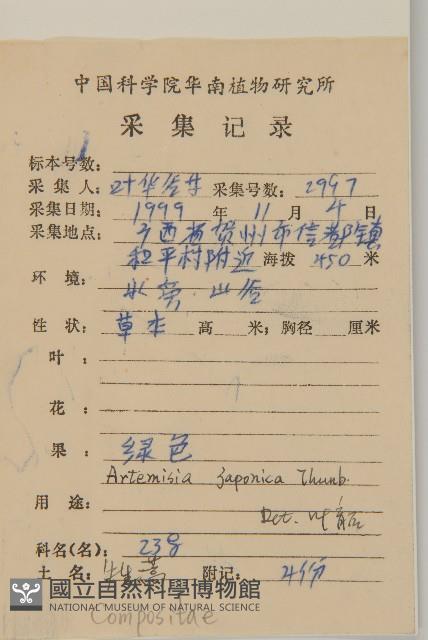 中国科学院华南植物研究所
采集记录
标本号数:
采集人: 叶华谷等 采集号数: 2997
采集日期: 1999 年 11 月 4 日
采集地点: 广西省贺州市信都镇
和平村附近 海拨 450 米
环境:
水旁.山谷
性状: 草本 高 米; 胸径 厘米
叶:
花:
果: 绿色
Artemisia Japonica Thunb.
用途:
Det.
科名(名): 238
土名: 牡蒿 附记: 4份
國立自然科學博物館
NATIONAL MUSEUM OF NATURAL SCIENCE
Compositae